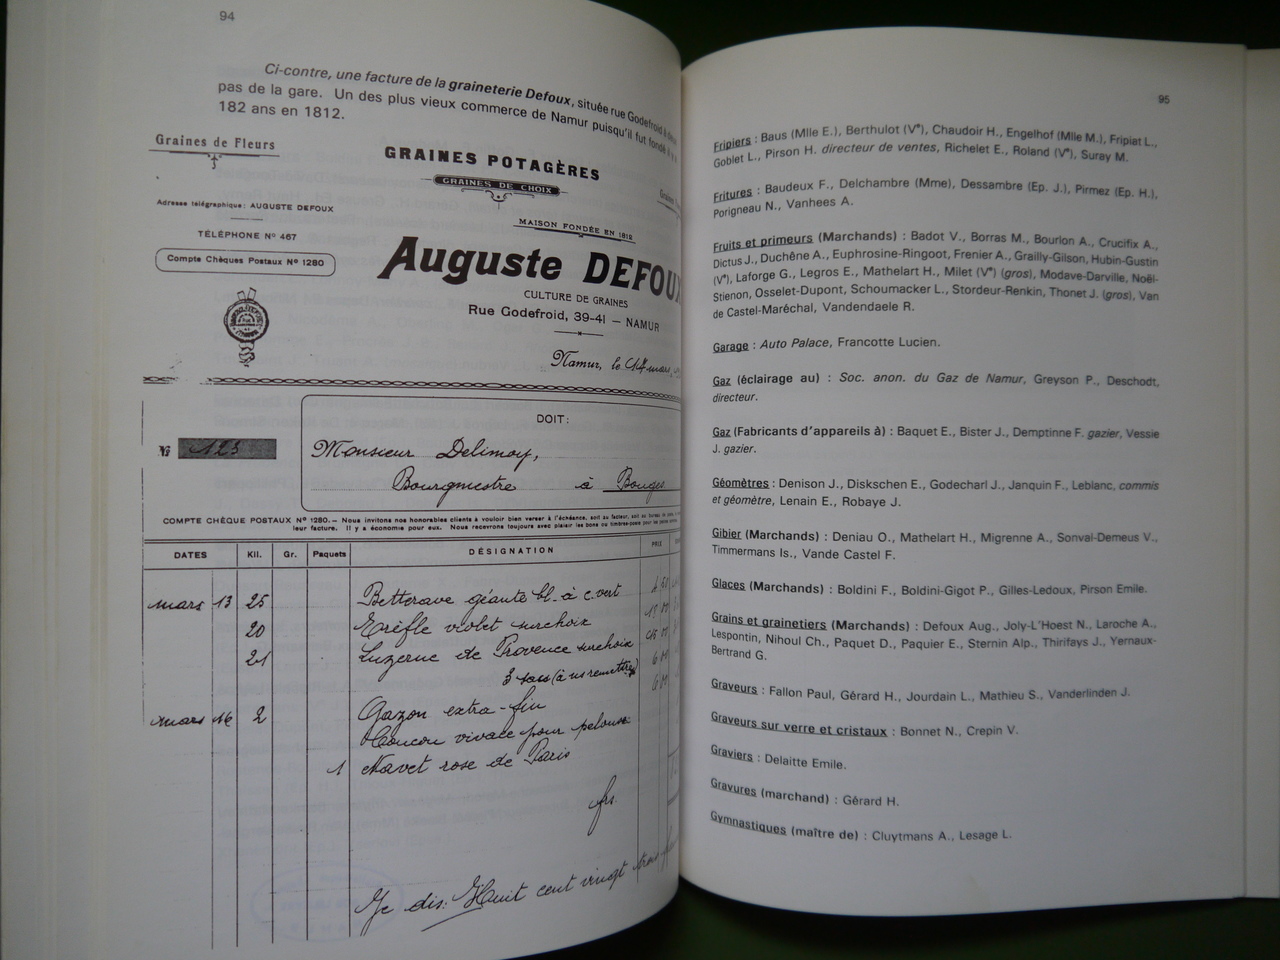 94
Ci-contre, une facture de la graineterie Defoux, située rue Godefroid à
pas de la gare. Un des plus vieux commerce de Namur puisqu'il fut fondé il y a
182 ans en 1812.
Graines de Fleurs
GRAINES POTAGÈRES
GRAINES DE CHOIX
Adresse télégraphique: AUGUSTE DEFOUX
MAISON FONDÉE EN 1812
TÉLÉPHONE Nº 467
Compte Chèques Postaux Nº 1280
Auguste DEFOUX
CULTURE DE GRAINES
Rue Godefroid, 39-41 — NAMUR
Namur, le 17 mars
DOIT:
Nº 123
Monsieur Delimoy,
Bourgmestre à Bouges
COMPTE CHÈQUE POSTAUX Nº 1280. - Nous invitons nos honorables clients à vouloir bien verser à l'échéance, soit au facteur, soit au bureau de
leur facture. Il y a économie pour eux. Nous recevrons toujours avec plaisir les bons ou timbres-poste pour les
DATES Kil. Gr. Paquets DÉSIGNATION PRIX
mars 13 25 Betterave géante bl. à c. vert
20 Trèfle violet surchoix
21 Luzerne de Provence surchoix
3 sacs (à ns remettre)
mars 16 2 Gazon extra-fin
Coucou vivace pour pelouse
1 Navet rose de Paris
frs.
Je dis: Huit cent vingt trois
95
Fripiers : Baus (Mlle E.), Berthulot (Vᵉ), Chaudoir H., Engelhof (Mlle M.), Fripiat L.,
Goblet L., Pirson H. directeur de ventes, Richelet E., Roland (Vᵉ), Suray M.
Fritures : Baudeux F., Delchambre (Mme), Dessambre (Ep. J.), Pirmez (Ep. H.),
Porigneau N., Vanhees A.
Fruits et primeurs (Marchands) : Badot V., Borras M., Bourlon A., Crucifix A.,
Dictus J., Duchêne A., Euphrosine-Ringoot, Frenier A., Grailly-Gilson, Hubin-Gustin
(Vᵉ), Laforge G., Legros E., Mathelart H., Milet (Vᵉ) (gros), Modave-Darville, Noël-
Stienon, Osselet-Dupont, Schoumacker L., Stordeur-Renkin, Thonet J. (gros), Van
de Castel-Maréchal, Vandendaele R.
Garage : Auto Palace, Francotte Lucien.
Gaz (éclairage au) : Soc. anon. du Gaz de Namur, Greyson P., Deschodt,
directeur.
Gaz (Fabricants d'appareils à) : Baquet E., Bister J., Demptinne F. gazier, Vessie
J. gazier.
Géomètres : Denison J., Diskschen E., Godecharl J., Janquin F., Leblanc, commis
et géomètre, Lenain E., Robaye J.
Gibier (Marchands) : Deniau O., Mathelart H., Migrenne A., Sonval-Demeus V.,
Timmermans Is., Vande Castel F.
Glaces (Marchands) : Boldini F., Boldini-Gigot P., Gilles-Ledoux, Pirson Emile.
Grains et grainetiers (Marchands) : Defoux Aug., Joly-L'Hoest N., Laroche A.,
Lespontin, Nihoul Ch., Paquet D., Paquier E., Sternin Alp., Thirifays J., Yernaux-
Bertrand G.
Graveurs : Fallon Paul, Gérard H., Jourdain L., Mathieu S., Vanderlinden J.
Graveurs sur verre et cristaux : Bonnet N., Crepin V.
Graviers : Delaitte Emile.
Gravures (marchand) : Gérard H.
Gymnastiques (maître de) : Cluytmans A., Lesage L.